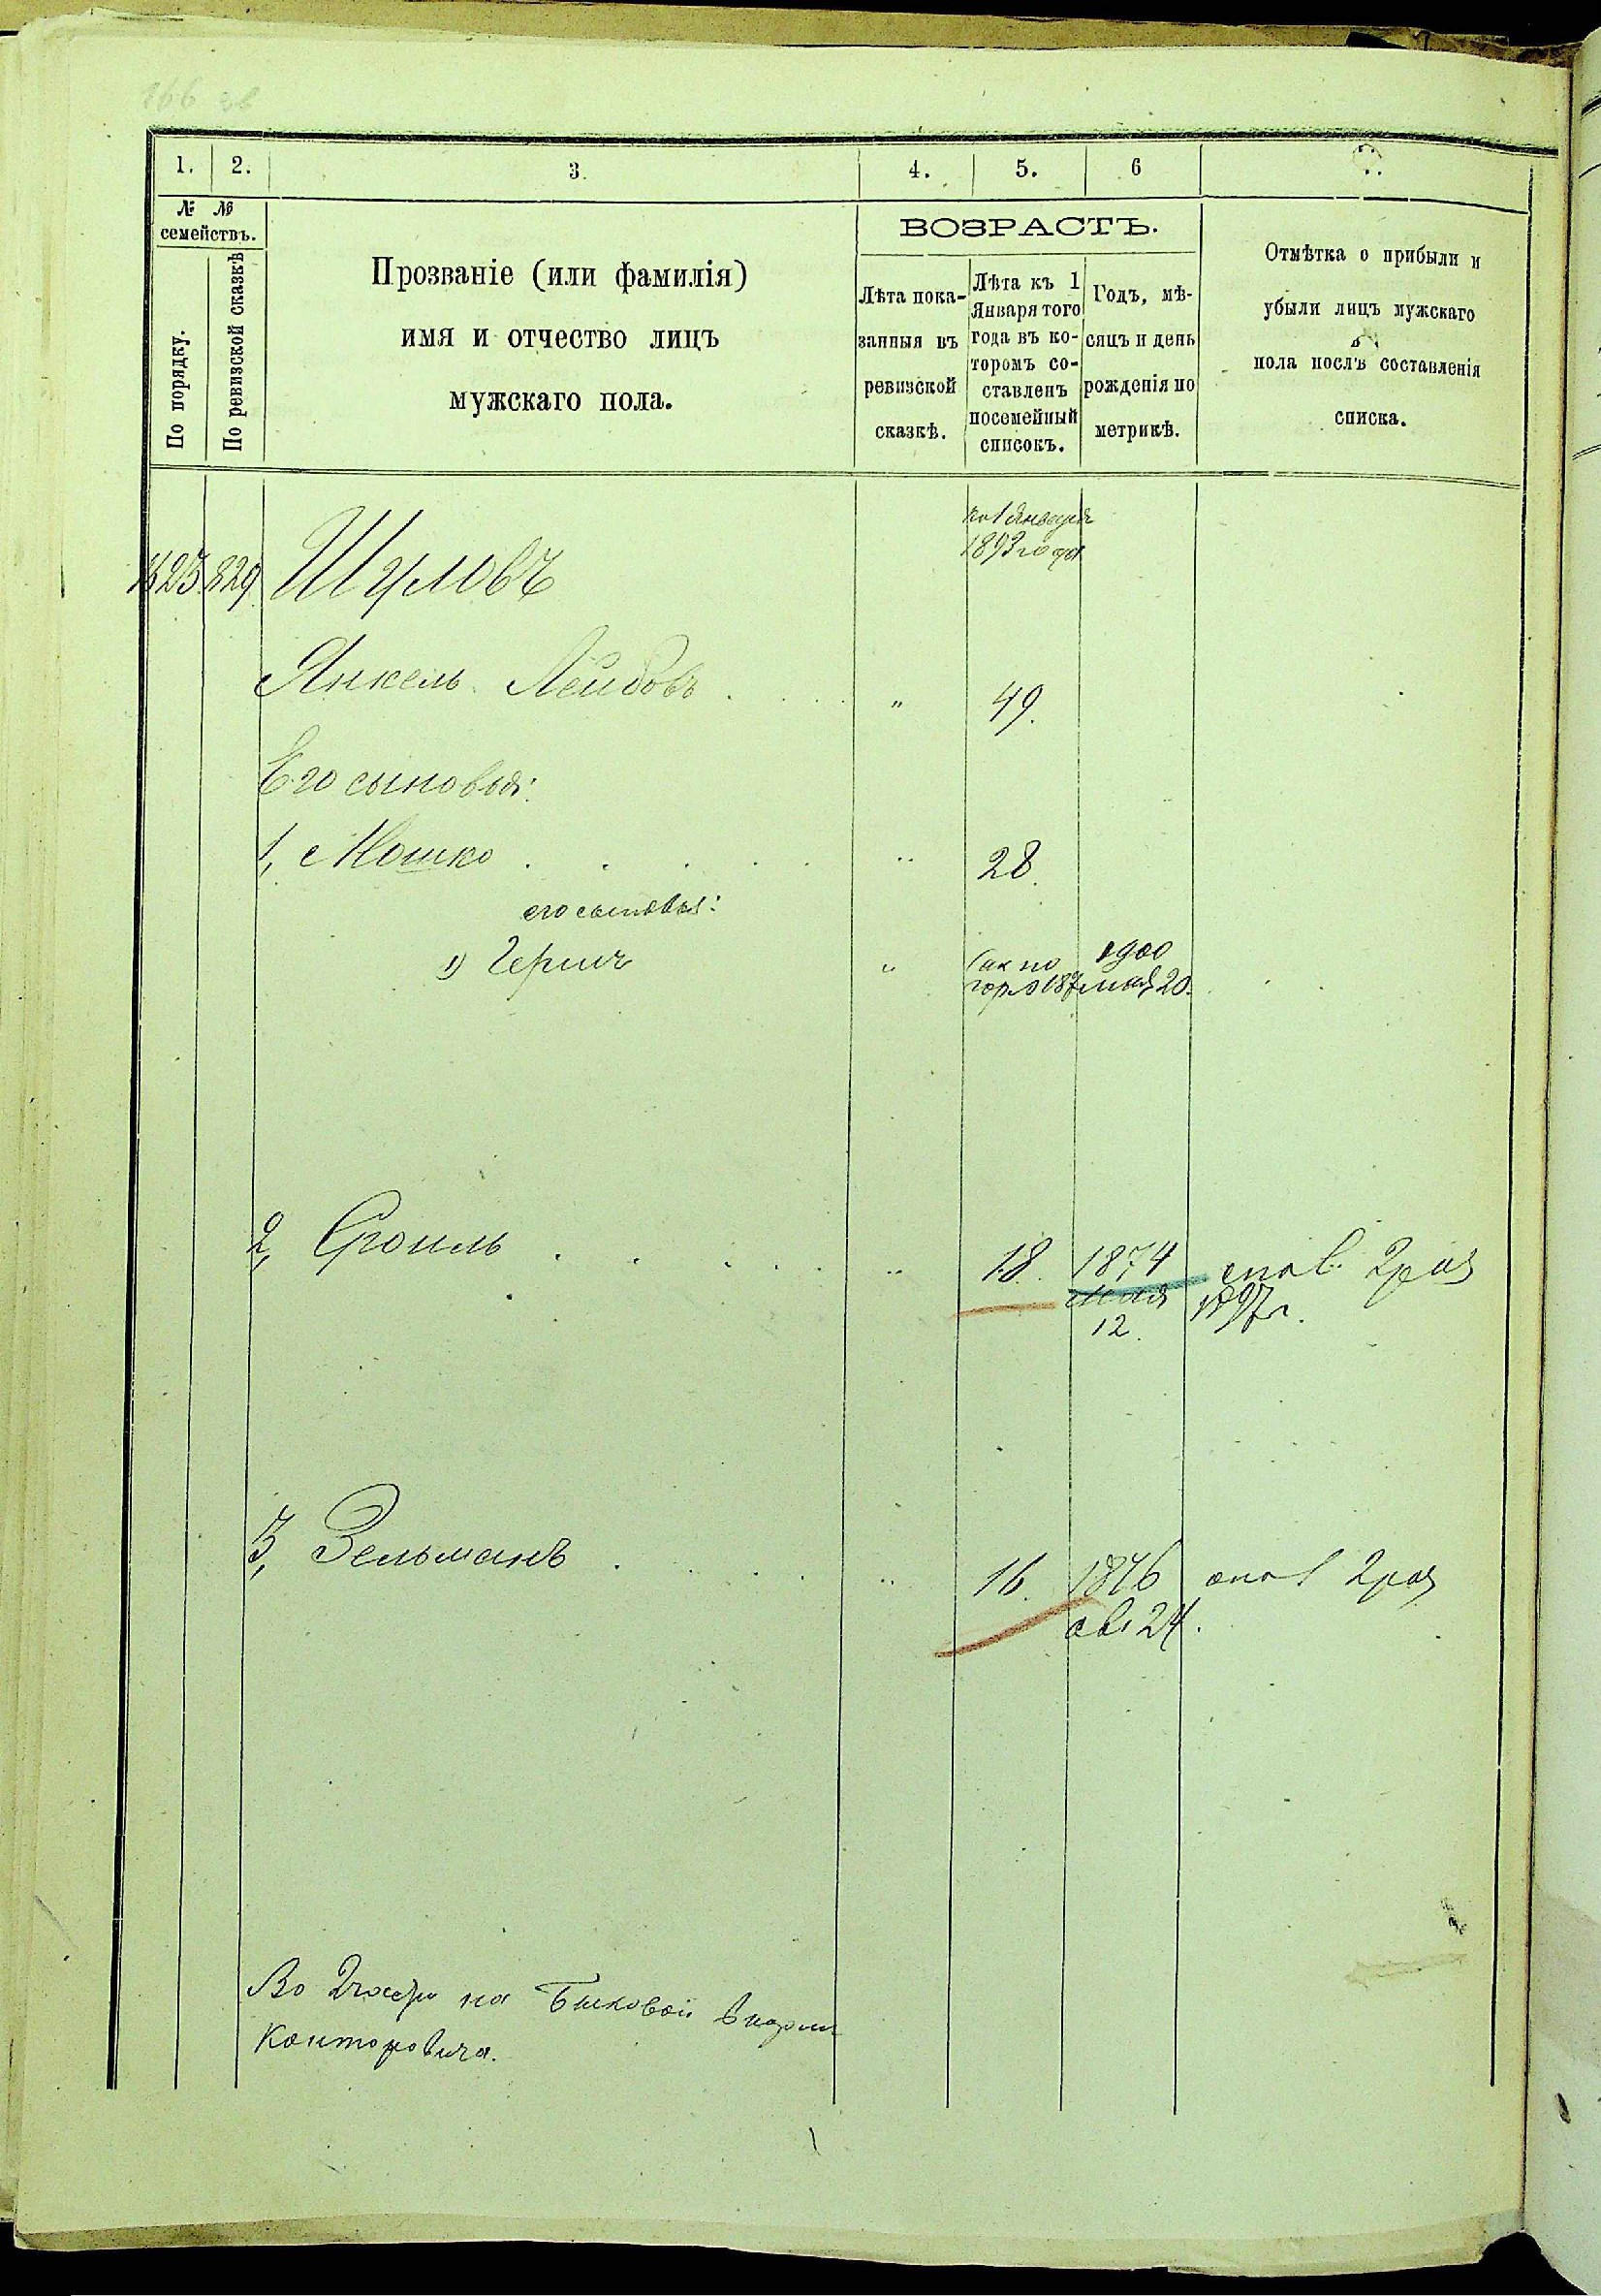 166 зв
1. 2. 3. 4. 5. 6
№ №
семействъ.
По порядку.
По ревизской сказкѣ
Прозваніе (или фамилія)
имя и отчество лицъ
мужскаго пола.
ВОЗРАСТЪ.
Лѣта пока-
занныя въ
ревизской
сказкѣ.
Лѣта къ 1
Января того
года въ ко-
торомъ со-
ставленъ
посемейный
списокъ.
Годъ, мѣ-
сяцъ и день
рожденія по
метрикѣ.
Отмѣтка о прибыли и
убыли лицъ мужскаго
пола послѣ составленія
списка.
на 1 Января
1893 года
1625 829 Шуловъ
Янкель Лейбовъ . . . " 49.
Его сыновья:
1, Мошко . . . . . " 28.
его сыновья:
1) Гершъ "
1900
мая 20.
2, Сроиль . . . . . " 18. 1874 2 раз
мая 1897 г.
12.
3, Зельманъ . . . . " 16. 1876 2 раз
авг 24.
Во 2 части на Быковой
Канторовича.